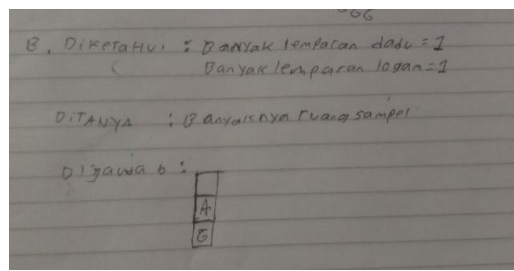 GGG
B. Diketahui : Banyak lemparan dadu = 1
Banyak lemparan logam = 1
DiTANYA : Banyaknya ruang sampel
Dijawab :
A
G